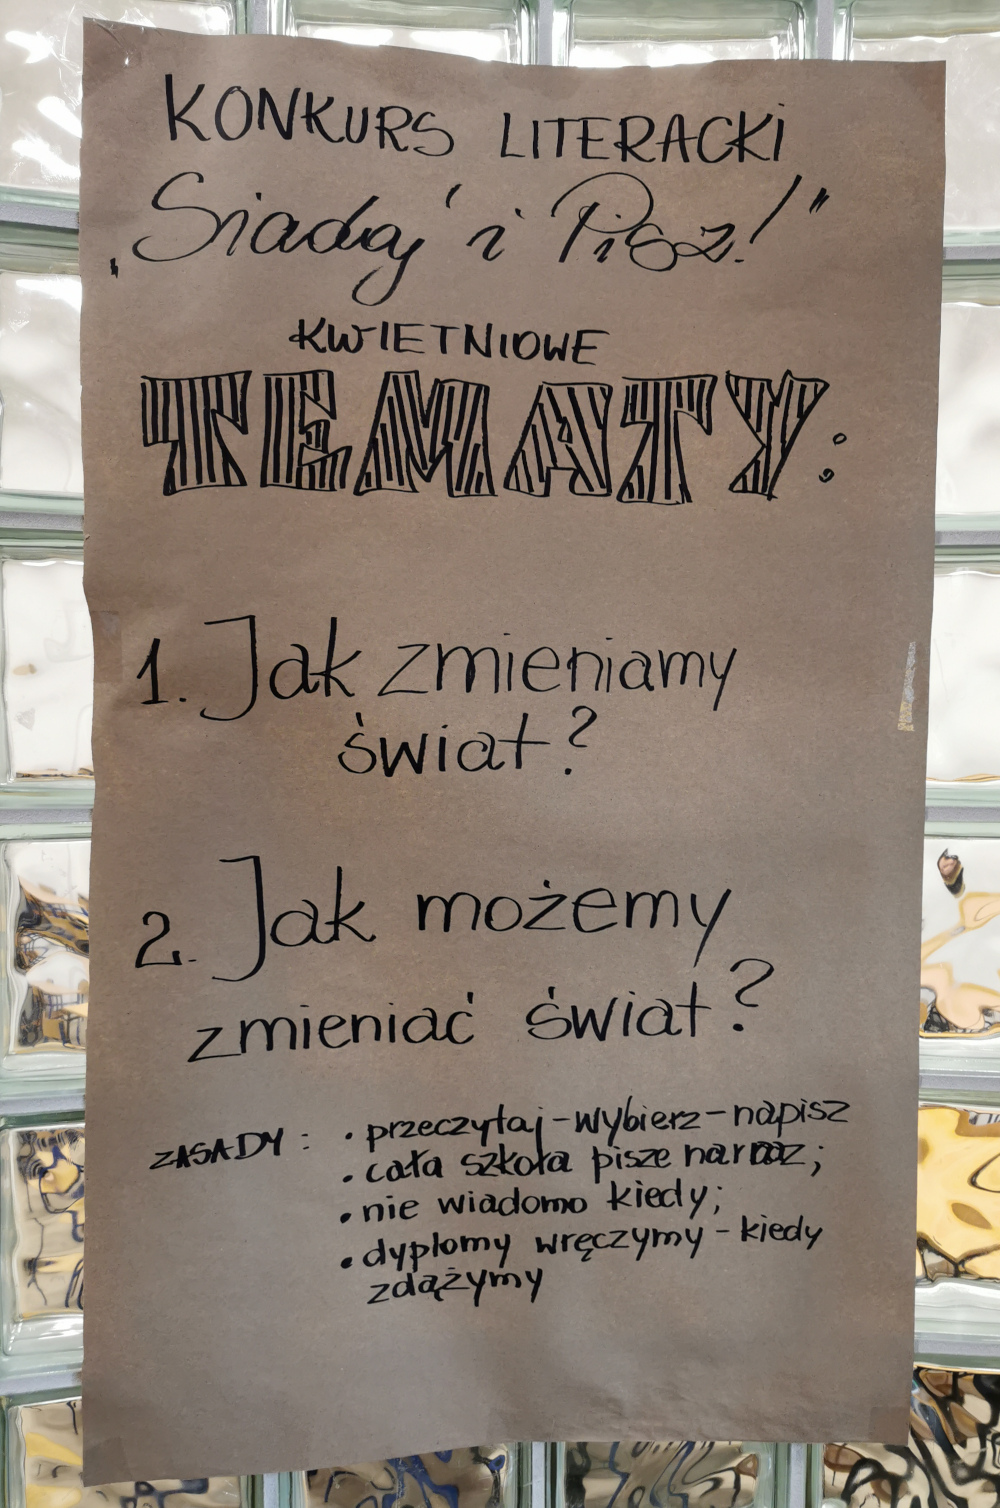 KONKURS LITERACKI
„Siadaj i Pisz!”
KWIETNIOWE
TEMATY:
1. Jak zmieniamy
świat?
2. Jak możemy
zmieniać świat?
ZASADY: • przeczytaj - wybierz - napisz
• cała szkoła pisze naraz;
• nie wiadomo kiedy;
• dyplomy wręczymy - kiedy
zdążymy